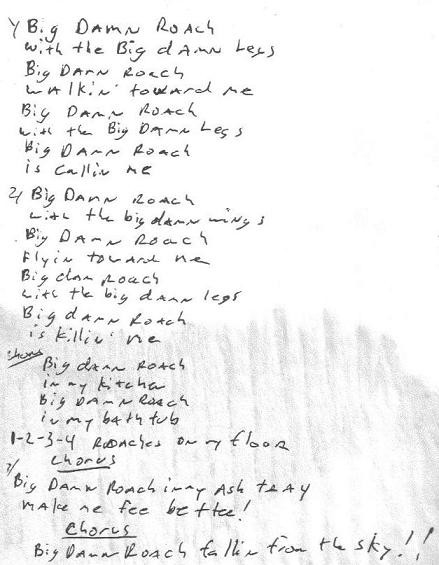 1/ Big DAMN ROACH
with the Big dAMN Legs
Big DAMN ROACH
WALKIN' TOWARD ME
Big DAMN ROACH
with the Big DAMN Legs
Big DAMN ROACH
is CALLIN ME
2/ Big DAMN ROACH
with the big damn wings
Big DAMN ROACH
FLYIN TOWARD ME
Big damn ROACH
with the big damn legs
Big dAMN ROACH
is killin' me
chorus
Big damn ROACH
in my kitchen
Big DAMN ROACH
in my bath tub
1-2-3-4 ROACHES ON my floor
chorus
3/
Big DAMN ROACH in my ASH TRAY
MAKE ME fee better!
chorus
Big DAMN ROACH fallin from the sky!!